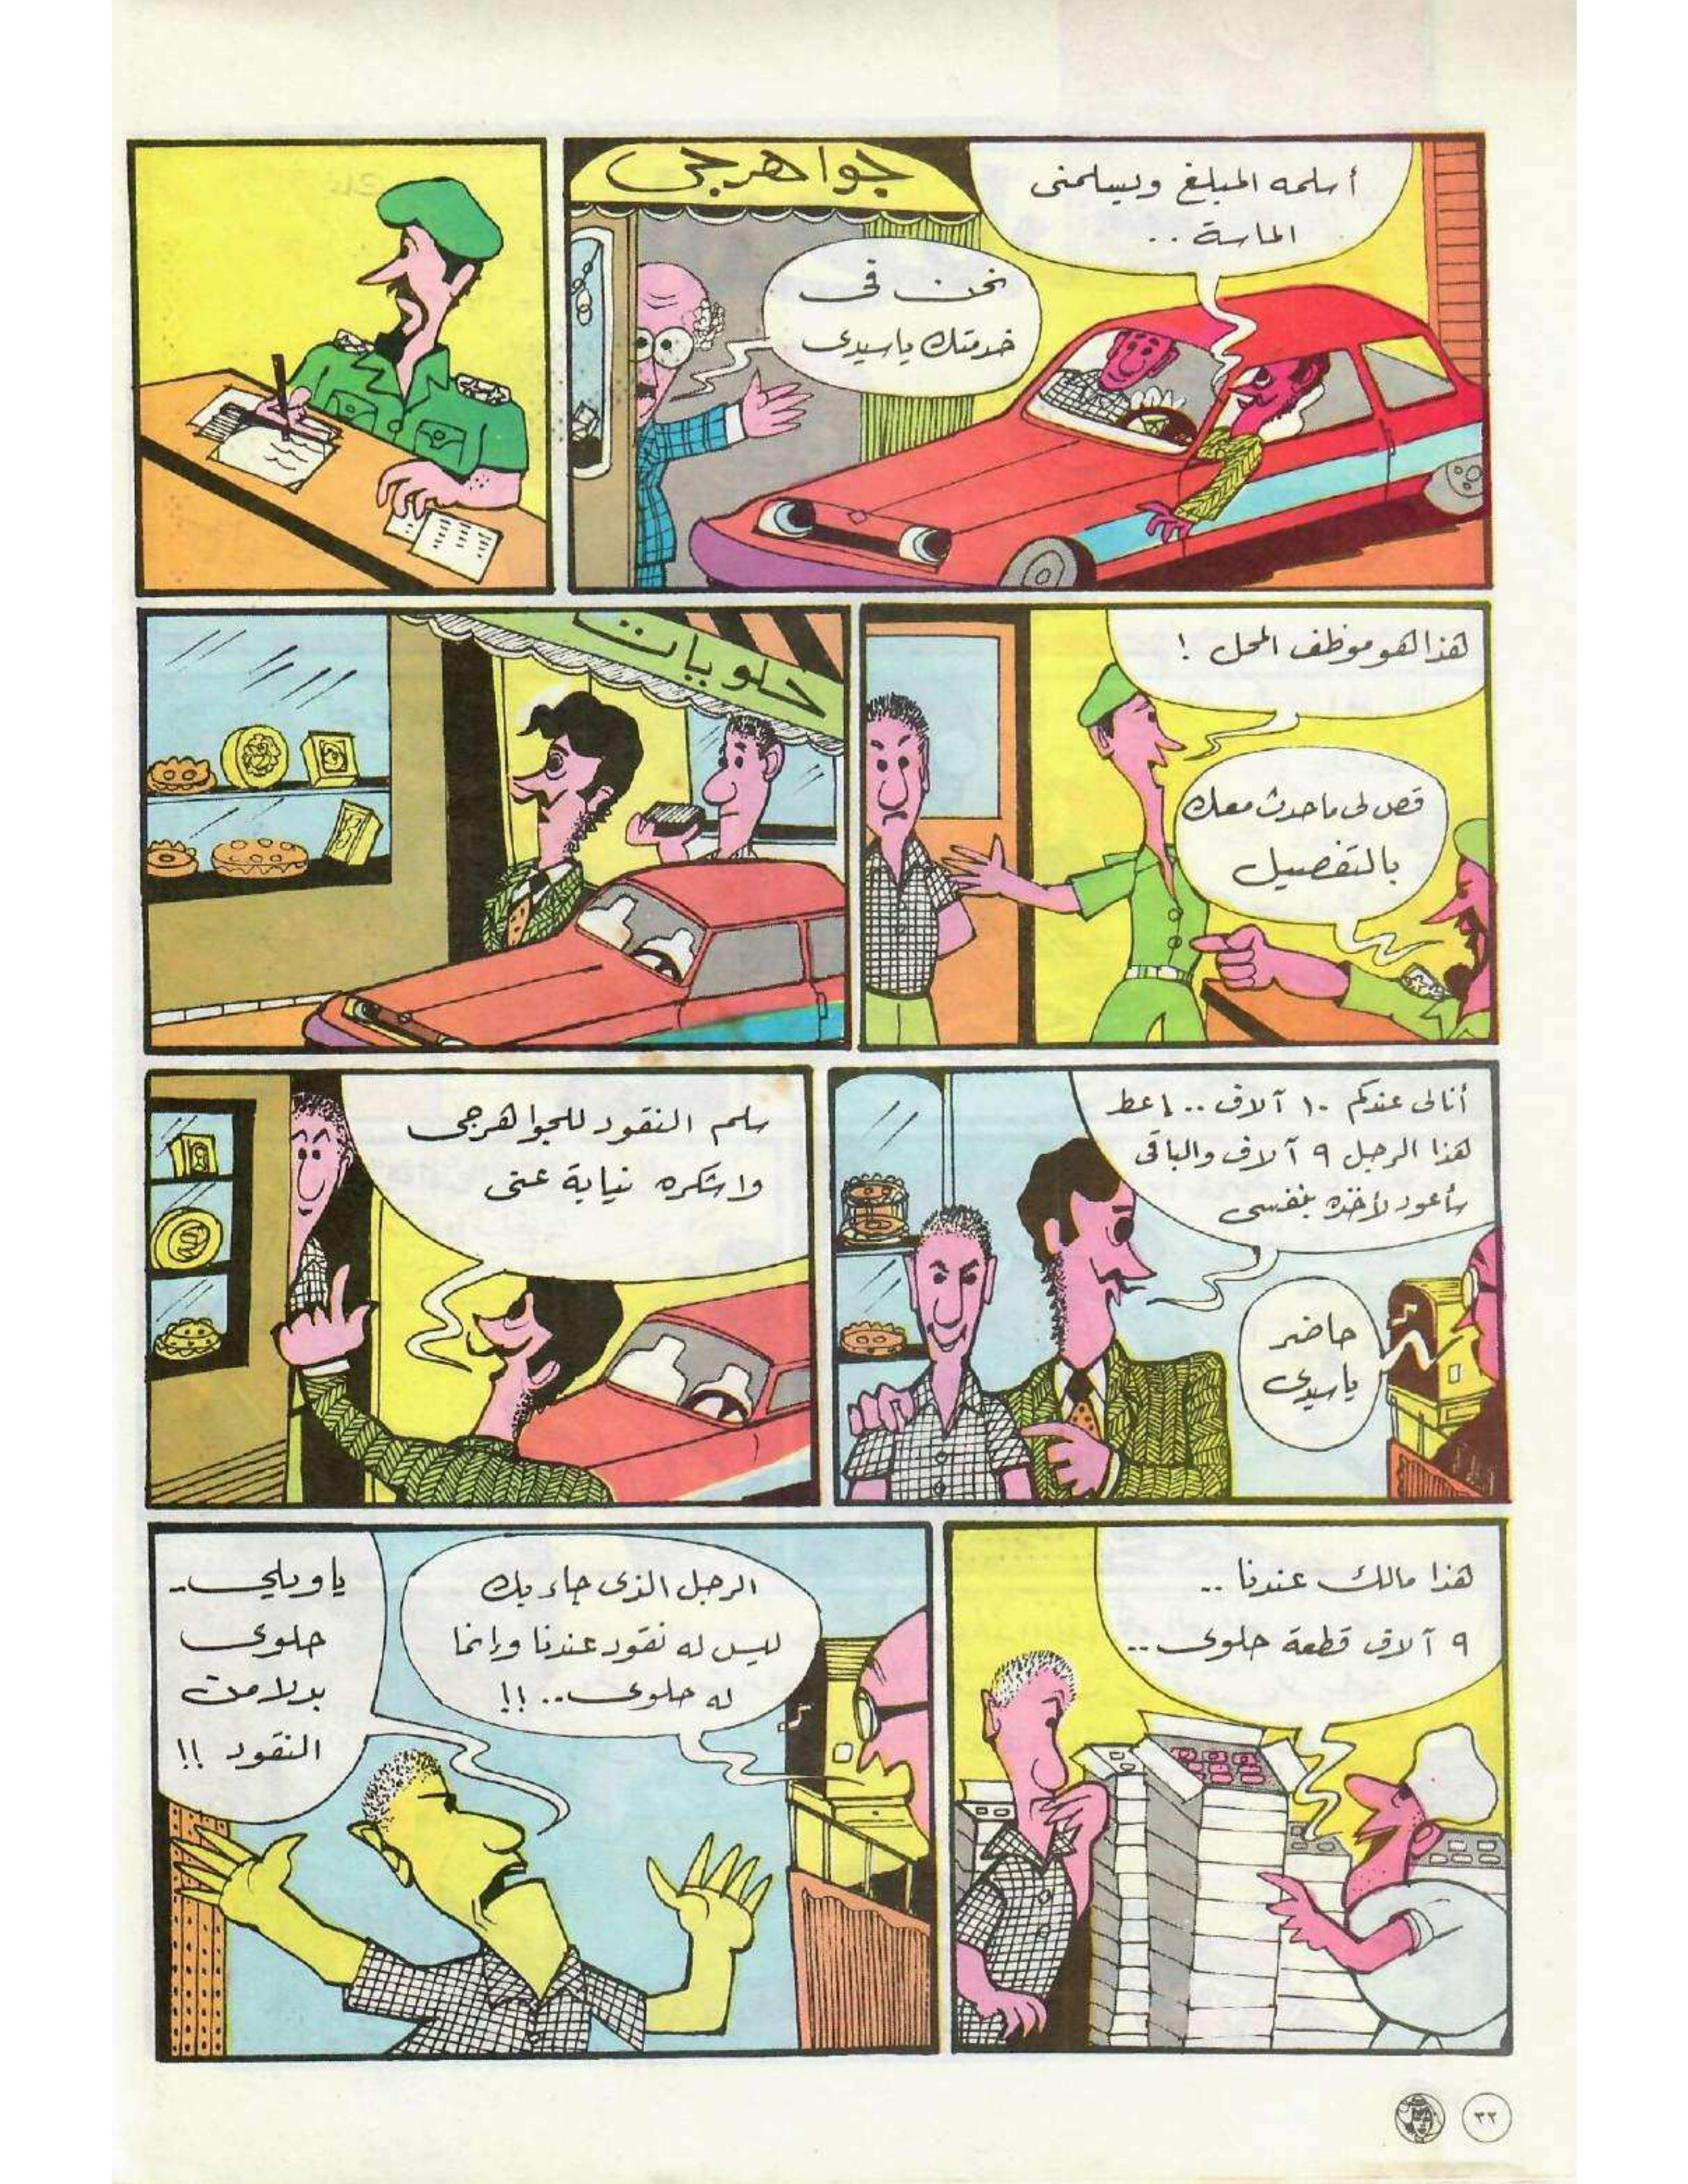 جواهرجى
أسلمه المبلغ ويسلمنى
الماسة ..
نحن فى
خدمتك ياسيدى
هذا هو موظف المحل !
قص لى ما حدث معك
بالتفصيل
حلويات
أنا لى عندكم ١٠ آلاف .. إعط
هذا الرجل ٩ آلاف والباقى
سأعود لآخذه بنفسى
حاضر
ياسيدى
سلم النقود للجواهرجى
واشكره نيابة عنى
هذا مالك عندنا ..
٩ آلاف قطعة حلوى ..
الرجل الذى جاء بك
ليس له نقود عندنا وإنما
له حلوى .. !!
ياويلى ..
حلوى
بدلا من
النقود !!
٣٢